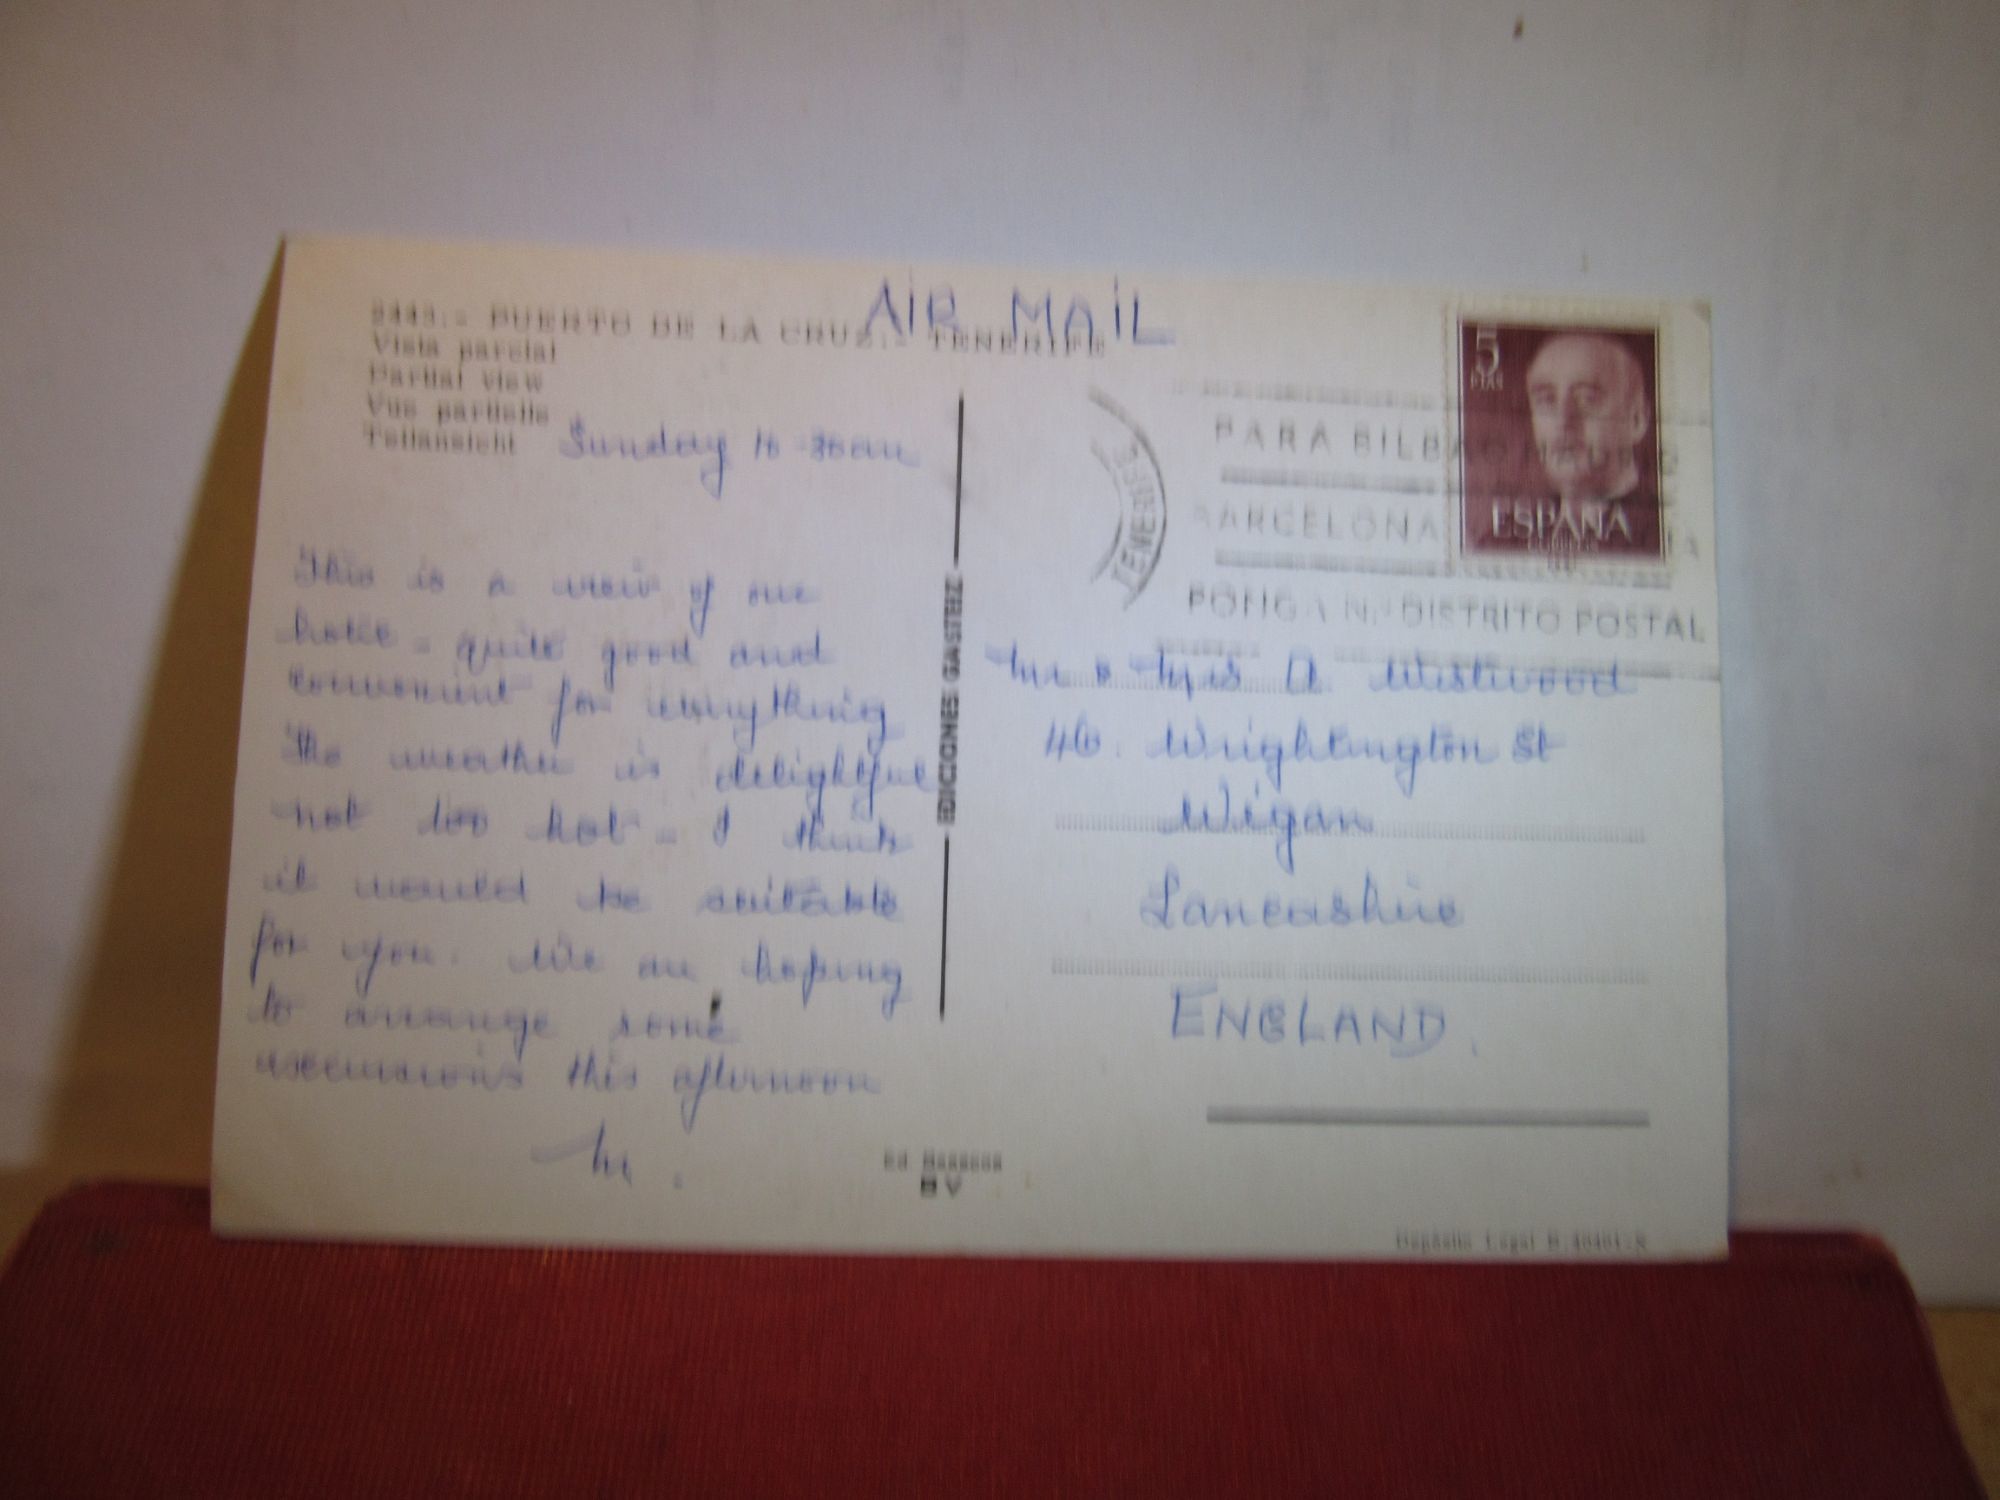 AIR MAIL
2443.- PUERTO DE LA CRUZ.- TENERIFE
Vista parcial
Partial view
Vue partielle
Teilansicht
Sunday 10-30am
This is a view of our
hotel - quite good and
convenient for everything
The weather is delightful
not too hot - I think
it would be suitable
for you. We are hoping
to arrange some
excursions this afternoon
M.
EDICIONES GASTEIZ
5
PTAS
ESPAÑA
CORREOS
TENERIFE
PARA BILBAO MADRID
BARCELONA
PONGA N.º DISTRITO POSTAL
Mr & Mrs A Westwood
46. Wrightington St
Wigan
Lancashire
ENGLAND.
Ed
Depósito Legal B.